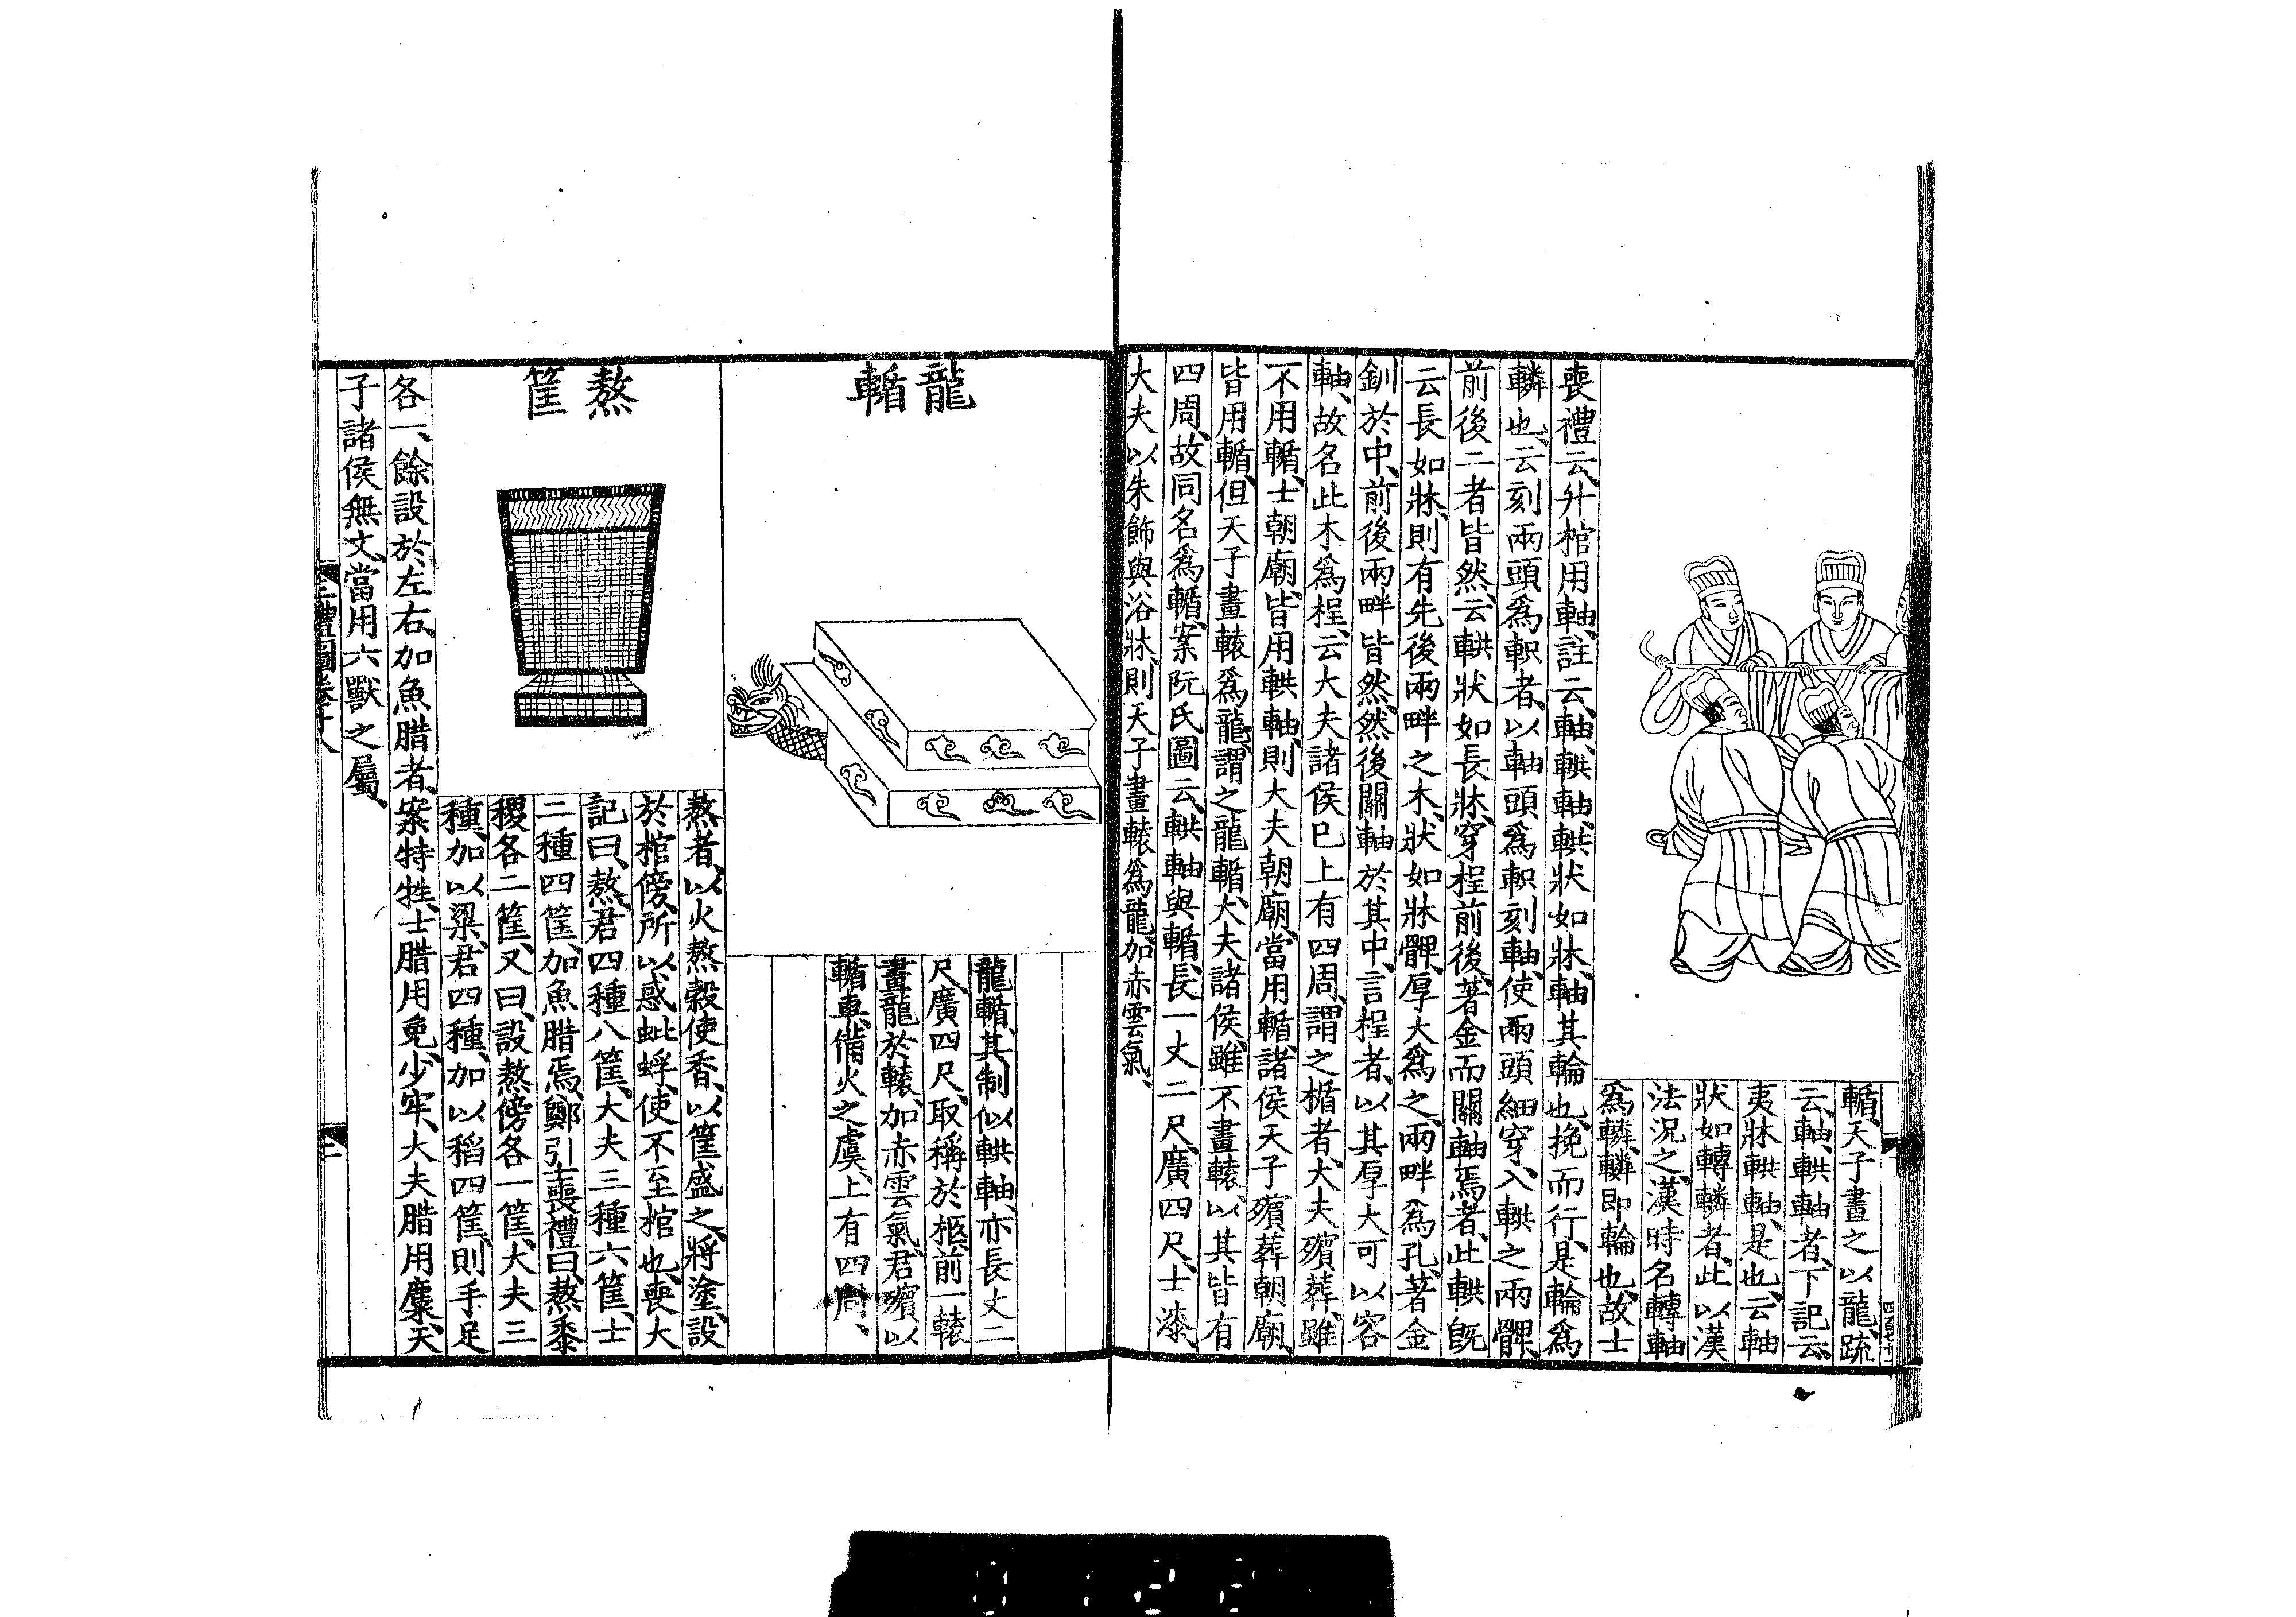 輴、天子畫之以龍、疏
云、軸、輁軸者、下記云、
夷牀輁軸、是也、云軸
狀如轉轔者、此以漢
法況之、漢時名轉軸
爲轔、轔即輪也、故士
喪禮云、升棺用軸、註云、軸、輁軸、輁狀如牀、軸其輪也、挽而行、是輪爲
轔也、云刻兩頭爲軹者、以軸頭爲軹刻軸、使兩頭細、穿入輁之兩髀、
前後二者皆然、云輁狀如長牀、穿桯前後、著金而關軸焉者、此輁旣
云長如牀、則有先後兩畔之木、狀如牀髀、厚大爲之、兩畔爲孔、著金
釧於中、前後兩畔皆然、然後關軸於其中、言桯者、以其厚大可以容
軸、故名此木爲桯、云大夫諸侯已上有四周、謂之楯者、大夫殯葬、雖
不用輴、士朝廟、皆用輁軸、則大夫朝廟、當用輴、諸侯天子殯葬朝廟、
皆用輴、但天子畫轅爲龍、謂之龍輴、大夫諸侯、雖不畫轅、以其皆有
四周、故同名爲輴、案阮氏圖云、輁軸與輴、長一丈二尺、廣四尺、士漆、
大夫以朱飾與浴牀、則天子畫轅爲龍、加赤雲氣、
龍輴
龍輴、其制似輁軸、亦長丈二
尺、廣四尺、取稱於柩、前一轅
畫龍於轅、加赤雲氣、君殯以
輴車、備火之虞、上有四周、
熬筐
熬者、以火熬穀使香、以筐盛之、將塗、設
於棺傍、所以惑蚍蜉、使不至棺也、喪大
記曰、熬、君四種八筐、大夫三種六筐、士
二種四筐、加魚腊焉、鄭引士喪禮曰、熬黍
稷各二筐、又曰、設熬傍各一筐、大夫三
種、加以粱、君四種、加以稻四筐、則手足
各一、餘設於左右、加魚腊者、案特牲、士腊用兔、少牢、大夫腊用麋、天
子諸侯無文、當用六獸之屬、
三禮圖卷十八